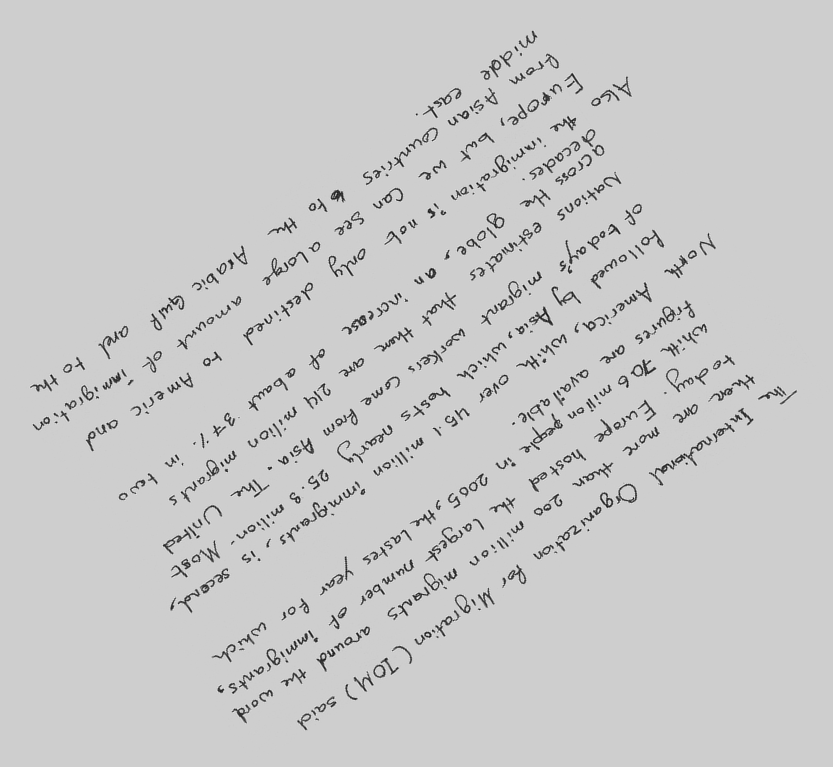 The International Organization for Migration (IOM) said
there are more than 200 million migrants around the word
today. Europe hosted the largest number of immigrants,
whith 70.6 million people in 2005, the lastes year for which
figures are available.
North America, whith over 45.1 million immigrants, is second,
followed by Asia, which hosts nearly 25.3 million. Most
of today's migrant workers come from Asia. The United
Nations estimates that there are 214 million migrants
across the globe, an increase of abaut 37% in two
decades.
Also the immigration is not only destined to Americ and
Europe, but we can see a large amount of immigration
from Asian countries to the Arabic Gulf and to the
middle east.